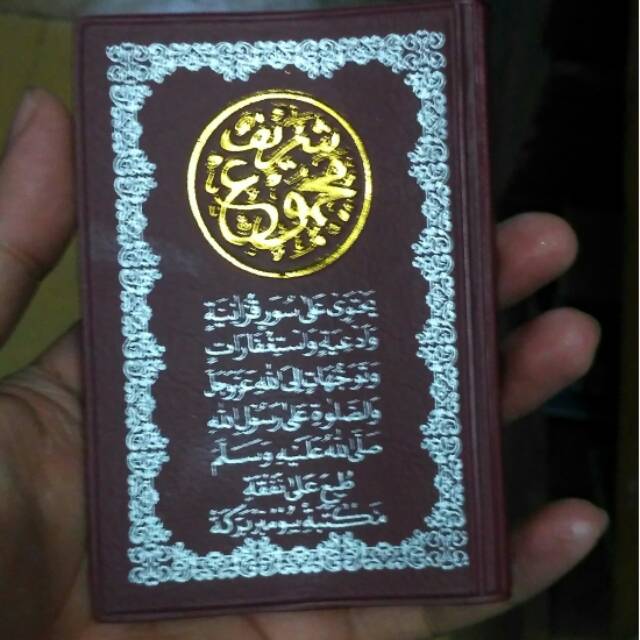 مجموع شريف
يحتوى على سور قرانية
وأدعية واستغفارات
وتوجهات الى الله عز وجل
والصلوة على رسول الله
صلى الله عليه وسلم
طبع على نفقة
مكتبة بومير بركة